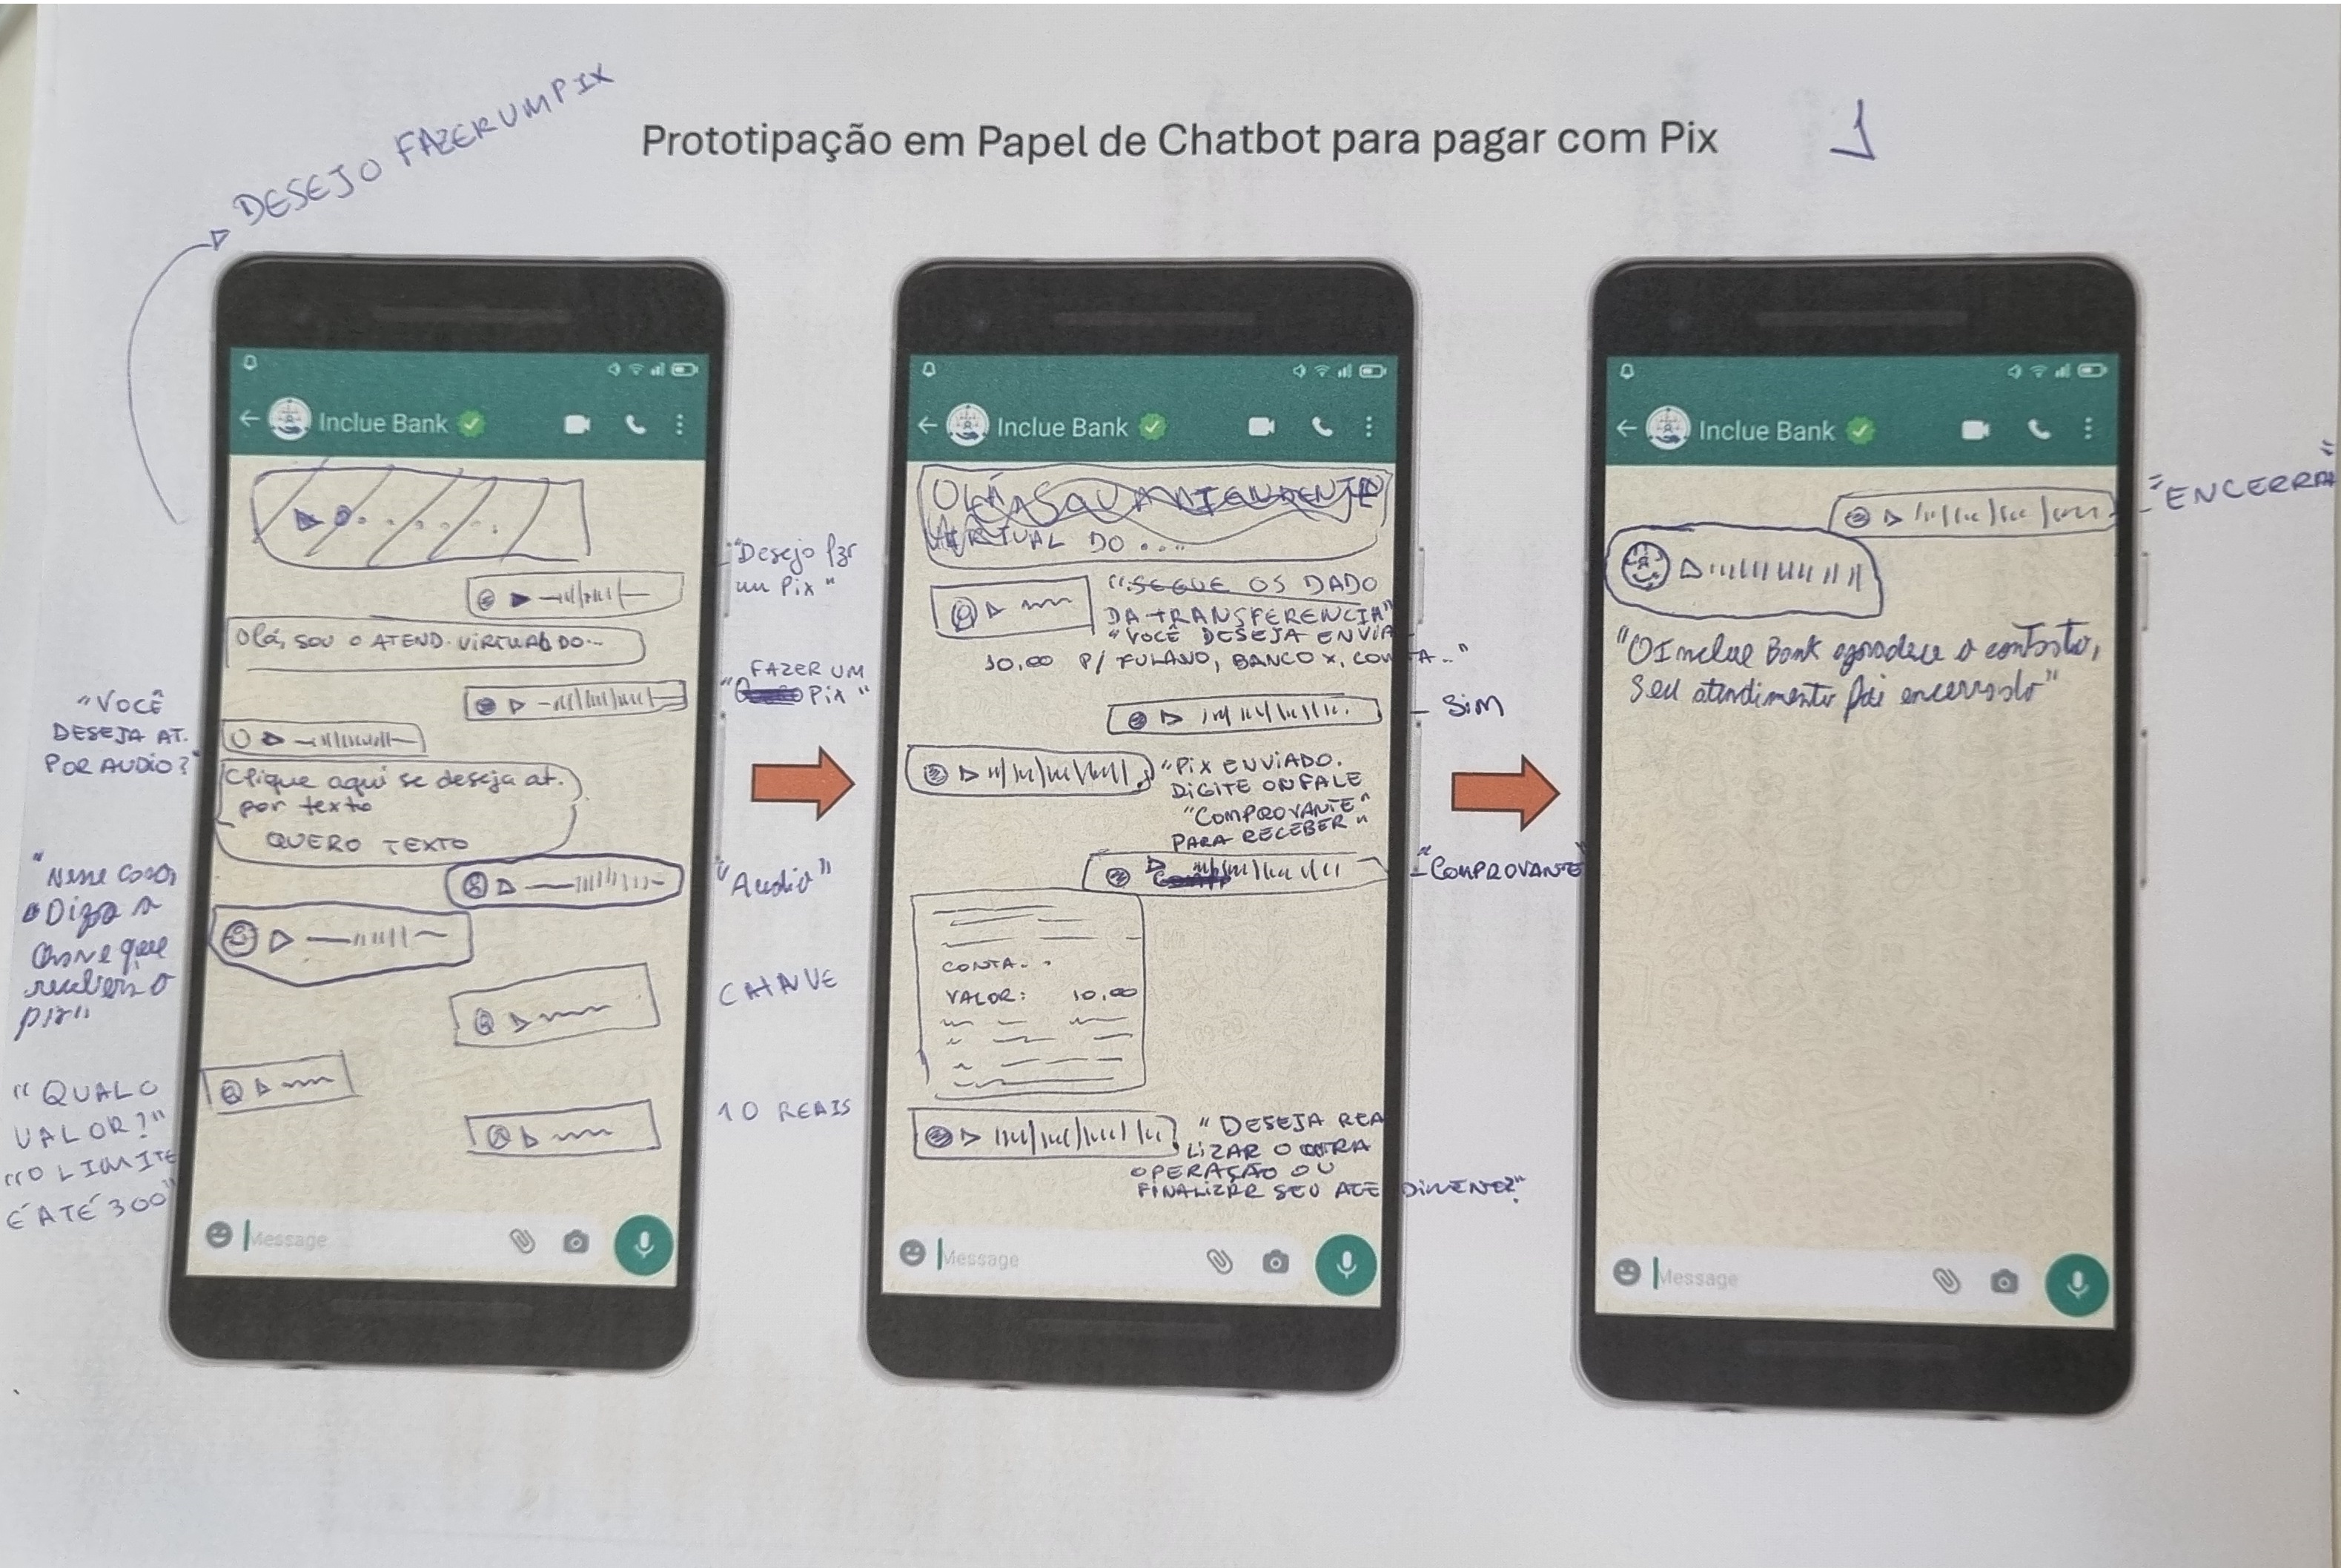 DESEJO FAZER UM PIX
Prototipação em Papel de Chatbot para pagar com Pix
1
Inclue Bank
"Desejo
um Pix"
Olá, sou o ATEND. VIRTUAL DO...
FAZER UM
PIX"
"VOCÊ
DESEJA AT.
POR AUDIO?"
Clique aqui se deseja at.
por texto
QUERO TEXTO
"Audio"
"Nesse caso,
Diga a
chave que
receberá o
pix"
CHAVE
"QUAL O
VALOR?"
"O LIMITE
É ATÉ 300"
10 REAIS
Message
Inclue Bank
OLÁ, SOU ATENDENTE
VIRTUAL DO ....
"SEGUE OS DADO
DA TRANSFERENCIA"
"VOCÊ DESEJA ENVIA
10,00 P/ FULANO, BANCO X, CONTA..."
SIM
"PIX ENVIADO.
DIGITE OU FALE
"COMPROVANTE"
PARA RECEBER"
"COMPROVANTE"
CONTA...
VALOR: 10,00
"DESEJA REA
LIZAR OUTRA
OPERAÇÃO OU
FINALIZAR SEU ATENDIMENTO?"
Message
Inclue Bank
"ENCERRA"
"O Inclue Bank agradece o contato,
seu atendimento foi encerrado"
Message